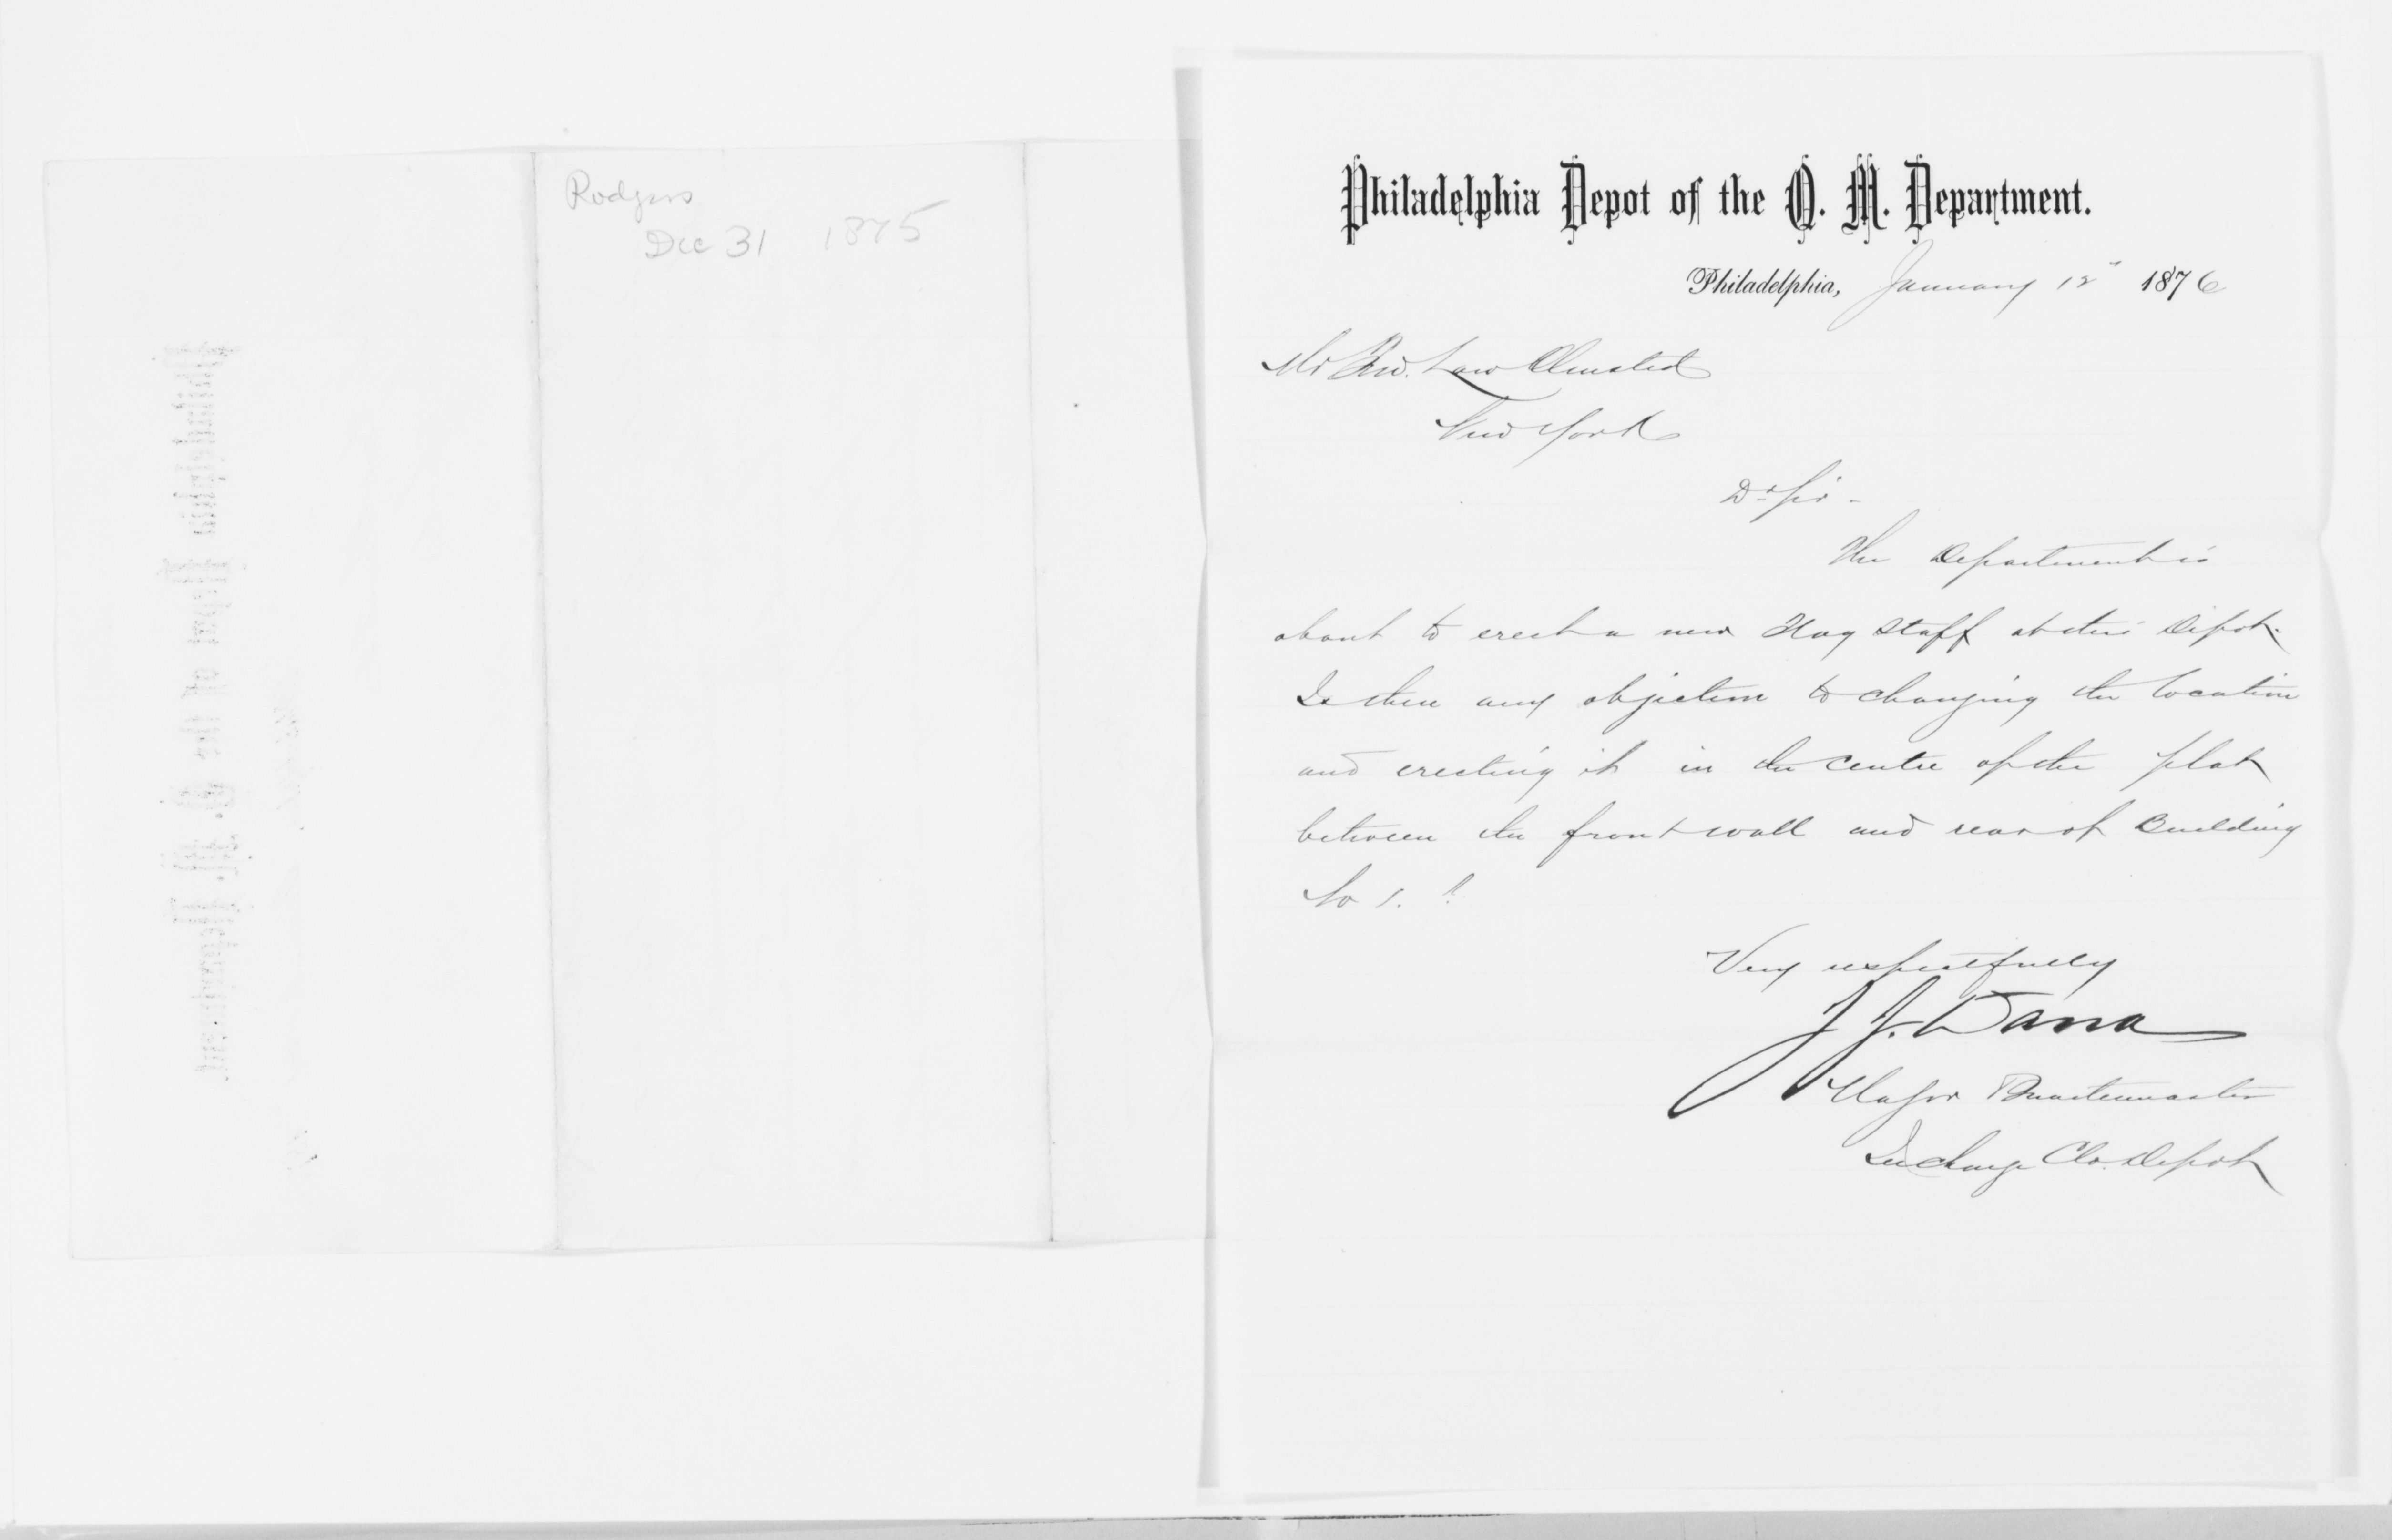 Rodgers
Dec 31 1875
Philadelphia Depot of the Q. M. Department.
Philadelphia, January 12" 1876
Mr Fred. Law Olmsted
New York
Dr Sir -
The Department is
about to erect a new Flag Staff at this Depot.
Is there any objection to changing the location
and erecting it in the centre of the plat
between the front wall and rear of Building
No 1. ?
Very respectfully
J. J. Dana
Major Quartermaster
In charge Clo. Depot